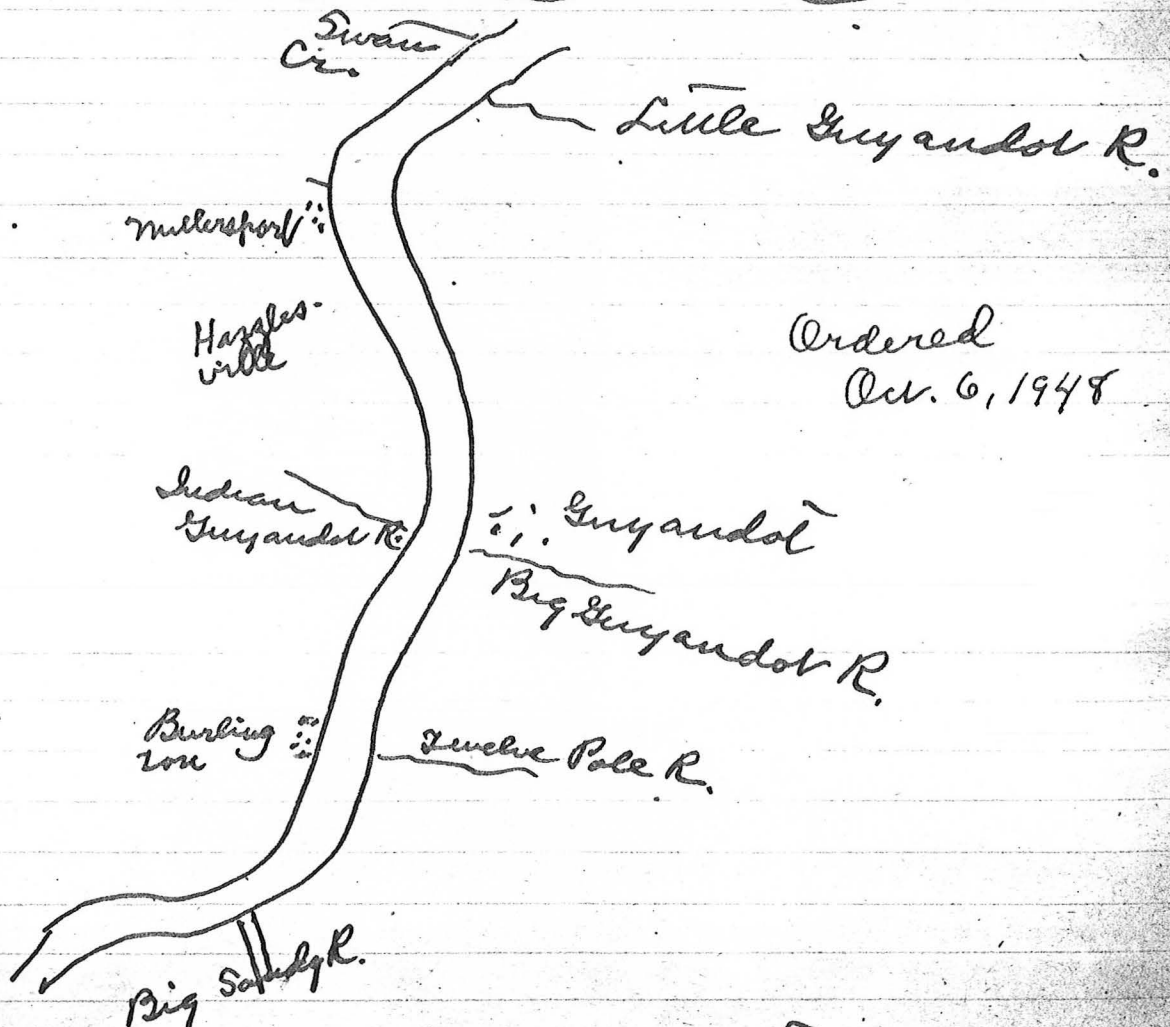 Swan
Cr.
Little Guyandot R.
Millersport
Hazzles-
ville
Ordered
Oct. 6, 1948
Indian
Guyandot R.
Guyandot
Big Guyandot R.
Burling
ton
Twelve Pole R.
Big Sandy R.